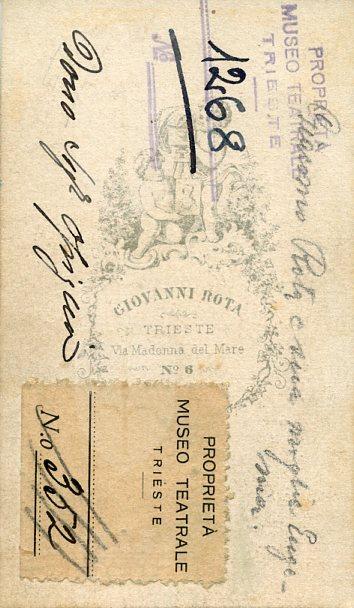 PROPRIETÀ
MUSEO TEATRALE
TRIESTE
No
1268
Giacomo Rota e sua moglie Euge-
nia.
Dono
GIOVANNI ROTA
TRIESTE
Via Madonna del Mare
No 6
PROPRIETÀ
MUSEO TEATRALE
TRIESTE
N.o 352